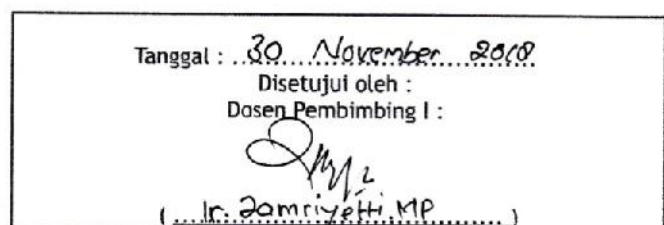 Tanggal : 30 November 2018
Disetujui oleh :
Dosen Pembimbing I :
( Ir. Jamriyetti. MP )